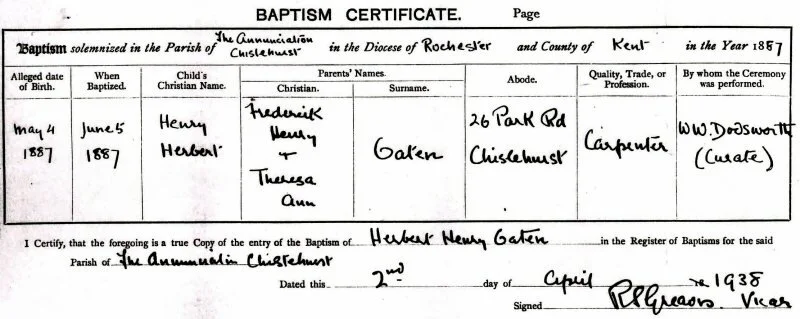 BAPTISM CERTIFICATE. Page
Baptism solemnized in the Parish of The Annunciation Chislehurst in the Diocese of Rochester and County of Kent in the Year 1887
Alleged date of Birth. When Baptized. Child's Christian Name. Parents' Names. Abode. Quality, Trade, or Profession. By whom the Ceremony was performed.
Christian. Surname.
May 4 1887 June 5 1887 Henry Herbert Frederick Henry + Theresa Ann Gaten 26 Park Rd Chislehurst Carpenter W.W. Dodsworth (Curate)
I Certify, that the foregoing is a true Copy of the entry of the Baptism of Herbert Henry Gaten in the Register of Baptisms for the said
Parish of The Annunciation Chislehurst
Dated this 2nd day of April 1938
Signed Vicar